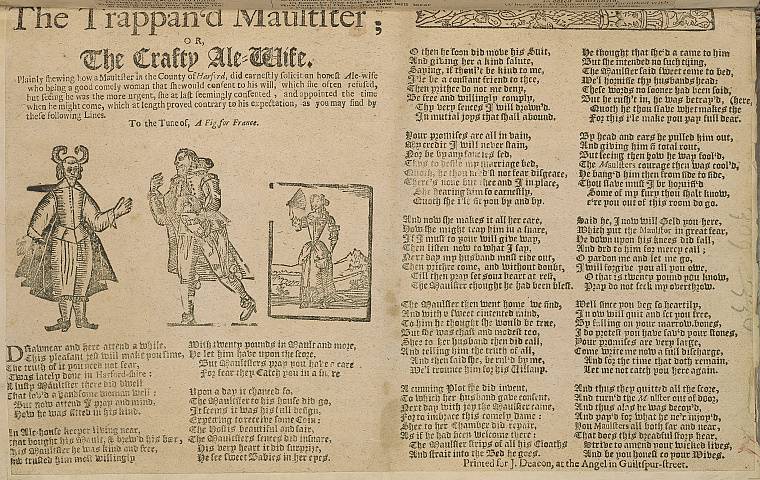 The Trappan'd Maultster;
OR,
The Crafty Ale-Wife.
Plainly shewing how a Maultster in the County of Harford, did earnestly solicit an honest Ale-wife
who being a good comely woman that she would consent to his will, which she often refused,
but seeing he was the more urgent, she at last seemingly consented, and appointed the time
when he might come, which at length proved contrary to his expectation, as you may find by
these following Lines.
To the Tune of, A Fig for France.
DRaw near and here attend a while,
This pleasant jest will make you smile,
The truth of it you need not fear,
Twas lately done in Harford-shire:
A lusty Maultster there did dwell
That lov'd a handsome woman well:
But now attend I pray and mind,
How he was fitted in his kind.
An Ale-house keeper living near,
that bought his Mault, & brew'd his beer,
This Maultster he was kind and free,
And trusted him most willingly
With twenty pounds in Mault and more,
He let him have upon the score.
But Maultsters pray you have a care
For fear they Catch you in a
Upon a day it chanced so,
The Maultster to his house did go,
It seems it was his full design,
Expecting to receive some Coin:
The Hostis beautiful and fair,
The Maultsters senses did insnare,
His very heart it did surprize,
He see sweet Babies in her eyes.
O then he soon did move his Suit,
And giving her a kind salute,
Saying, if thou'lt be kind to me,
I'le be a constant friend to thee,
Then prithee do not me deny,
Be free and willingly comply,
Thy very sences I will drown'd.
In mutial joys that shall abound.
Your promises are all in vain,
My credit I will never stain,
Nor be by any
Thus to defile my marriage bed,
Quoth he thou need'st not fear disgrace,
There's none but thee and I in place,
She hearing him so earnestly,
Quoth she i'le fit you by and by.
And now she makes it all her care,
How she might trap him in a snare,
If I must to your will give way,
Then listen now to what I say,
Next day my husband must ride out,
Then prithee come, and without doubt,
Till then pray set your heart at rest,
The Maultster thought he had been blest.
The Maultster then went home we find,
And with a sweet contented mind,
To him he thought she would be true,
But she was chast and modest too,
Shee to her husband then did call,
And telling him the truth of all,
And then said she, be rul'd by me,
We'l trounce him for his Villany.
A cunning Plot she did invent,
To which her husband gave consent,
Next day with joy the Maultster came,
For to imbrace this comely dame:
Shee to her Chamber did repair,
As if he had been welcome there:
The Maultster strips of all his Cloaths
And strait into the Bed he goes.
He thought that she'd a came to him
But she intended no such thing,
The Maultster said sweet come to bed,
We'l hornifie thy husbands head:
These words no sooner had been said,
But he rusht in, he was betray'd, (here,
Quoth he thou slave what makes thee
For this i'le make you pay full dear.
By head and ears he pulled him out,
And giving him a total rout,
But seeing then how he was fool'd,
The Maultsters courage then was cool'd,
He bang'd him then from side to side,
Thou slave must I be hornifi'd
Some of my fury thou shalt know,
e're you out of this room do go.
Said he, I now will Geld you here,
Which put the Maultster in great fear,
He down upon his knees did fall,
And did to him for mercy call;
O pardon me and let me go,
I will forgive you all you owe,
O that is twenty pound you know,
Pray do not seek my overthrow.
Well since you beg so heartily,
I now will quit and set you free,
By falling on your marrow-bones,
I do protest you have sav'd your stones,
Your promises are very large,
Come write me now a full discharge,
And for the time that doth remain,
Let me not catch you here again.
And thus they quitted all the score,
And turn'd the Maultster out of door,
And thus alas he was decoy'd,
And pay'd for what he ne'r injoy'd,
You Maultsters all both far and near,
That does this dreadful story hear,
Strive to amend your wicked lives,
And be you honest to your Wives.
Printed for J. Deacon, at the Angel in Guiltspur-street.